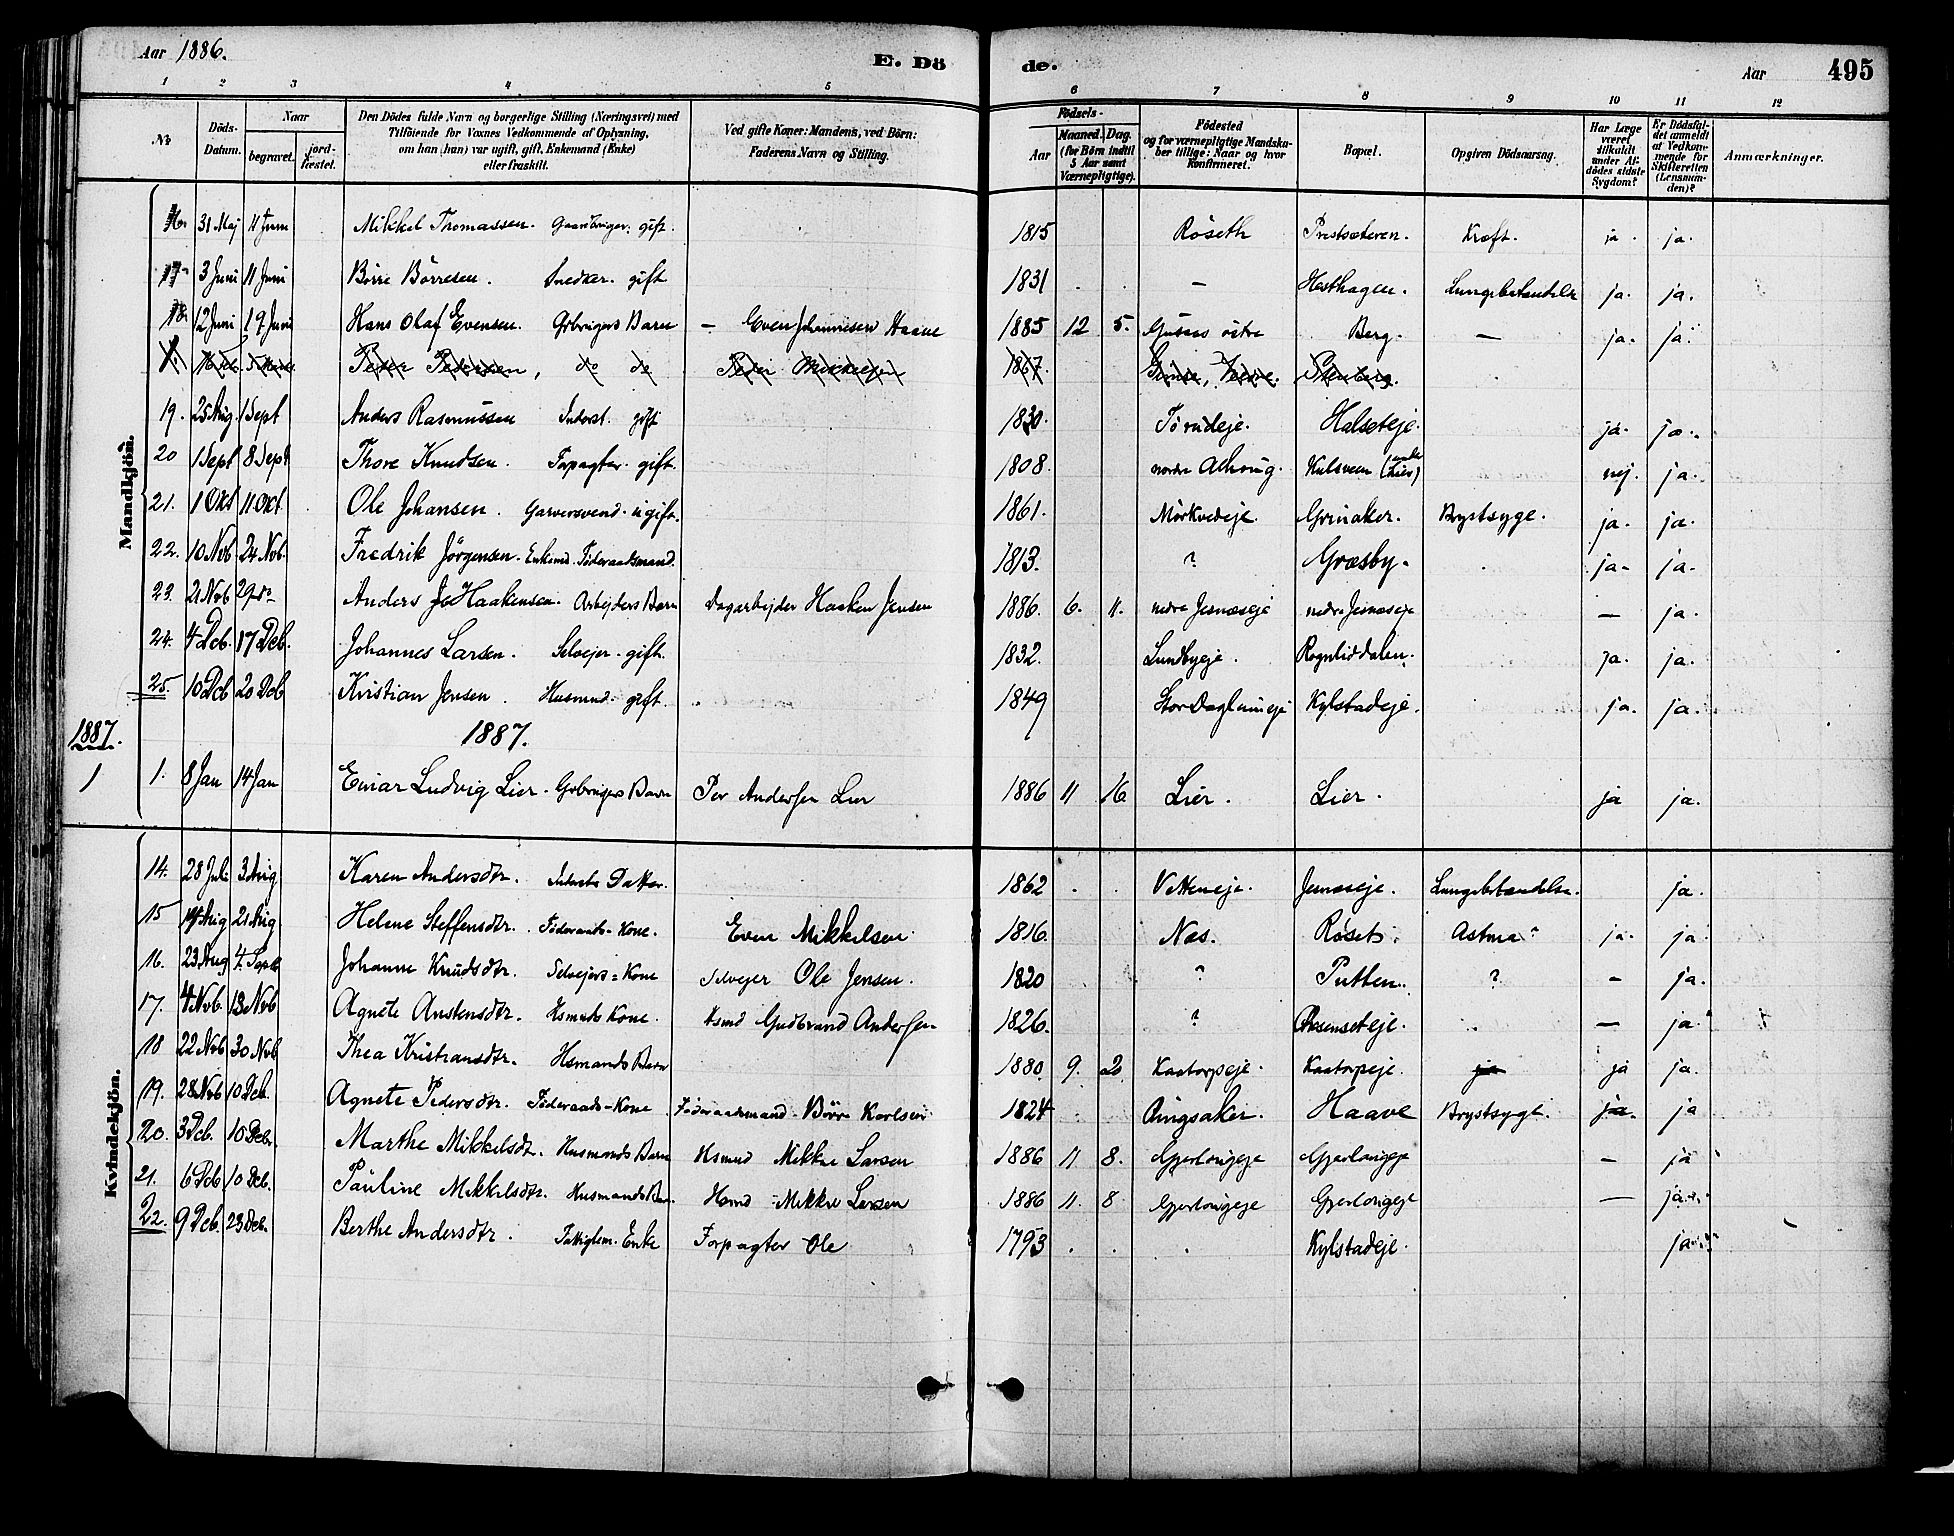 Aar 1886. E. Dö de. Aar 495
1 2 3 4 5 6 7 8 9 10 11 12
No. Döds-Datum. Naar begravet. jord-fæstet. Den Dödes fulde Navn og borgerlige Stilling (Næringsvei) med Tilföiende for Voxnes Vedkommende af Oplysning, om han (hun) var ugift, gift, Enkemand (Enke) eller fraskilt. Ved gifte Koner: Mandens, ved Börn: Faderens Navn og Stilling. Födsels- Aar Maaned. Dag. (for Börn indtil 5 Aar samt Værnepligtige). Födested og for værnepligtige Mandskaber tillige: Naar og hvor Konfirmeret. Bopæl. Opgiven Dödsaarsag. Har Læge været tilkaldt under Afdödes sidste Sygdom? Er Dödsfaldet anmeldt af Vedkommende for Skifteretten (Lensmanden)? Anmærkninger.
Mandkjön.
16. 31 Maj 11 Juni Mikkel Thomassen. Gaardbruger. gift. 1815 Röseth Prestsæteren. Kræft. ja. ja.
17. 3 Juni 11 Juni Börre Börresen. Snedker. gift 1831 . . — Hesthagen. Lungebetændelse ja. ja.
18. 12 Juni 19 Juni Hans Olaf Evensen. Grbrugers Barn — Even Johannesen Haave 1885 12 5. östre Berg. — ja. ja.
Peder Pedersen, do do Peder Mikkelsen 1867. Stenberg.
19. 25 Aug. 1 Sept Anders Rasmussen Inderst. gift 1830. Törudeje. Halseteje. ja. ja.
20 1 Sept 8 Sept Thore Knudsen. Forpagter. gift. 1808. nordre Alhoug. Kulsveen (Lier) nej. ja.
21. 1 Okt 11 Okt. Ole Johansen. Garversvend. ugift. 1861. Mörkvedeje. Grinaker. Brystsyge. ja. ja.
22. 10 Nvb 24 Nvb. Fredrik Jörgensen. Enkemd. Föderaadsmand. 1813. ? Græsby. ja. ja.
23. 21 Nvb 29 do Anders Haakensen. Arbejders Barn Dagarbejder Haaken Jensen 1886. 6. 11. nedre Jesnæseje nedre Jesnæseje — ja.
24. 4 Dcb. 17 Dcb. Johannes Larsen. Selvejer. gift. 1832. Lundbyeje. Rognliddalen. ja. ja.
25. 10 Dcb 20 Dcb Kristian Jensen. Husmnd. gift. 1849 Kylstadeje. ja. ja.
1887. 1887.
1 1. 8 Jan 14 Jan Einar Ludvig Lier. Grbrugers Barn Per Andersen Lier 1886 11 16 Lier. Lier. ja ja.
Kvindekjön.
14. 28 Juli 3 Aug Karen Andersdtr. Inderstes Datter. 1862 . . Vetteneje. Jesnæseje. Lungebetændelse. ja.
15 14 Aug 21 Aug Helene Steffensdtr. Föderaads-Kone. Even Mikkelsen 1816. Næs. Röset. Astma? ja. ja
16. 23 Aug 4. Septb Johanne Knudsdtr. Selvejers-Kone Selvejer Ole Jensen. 1820 ? Putten. ? — ja.
17. 4. Nvb. 13 Nvb Agnete Anstensdtr. Hsmnds Kone. Hsmd Gudbrand Andersen 1826. ? Rosenseteje. — ja.
18 22 Nvb 30 Nvb Thea Kristiansdtr. Hsmands Barn 1880. 9. 20 Kaatorpeje. Kaatorpeje. ja ja ja.
19. 28 Nvb 10 Dcb. Agnete Pedersdtr. Föderaads-Kone Föderaadsmand. Börre Karlsen 1824 Ringsaker. Haave Brystsyge. ja. ja
20. 3 Dcb. 10 Dcbr. Marthe Mikkelsdtr. Husmands Barn Hsmnd Mikkel Larsen 1886 11 8. Gjerlougeje Gjerlougeje — ja
21. 6 Dcb 10 Dcb. Pauline Mikkelsdtr. Husmands Barn Hsmd Mikkel Larsen 1886 11. 8 Gjerlougeje Gjerlougeje — ja.
22. 9 Dcb 23 Dcbr. Berthe Andersdtr. Fattiglem. Enke Forpagter Ole 1793 . . . Kylstadeje. ja.